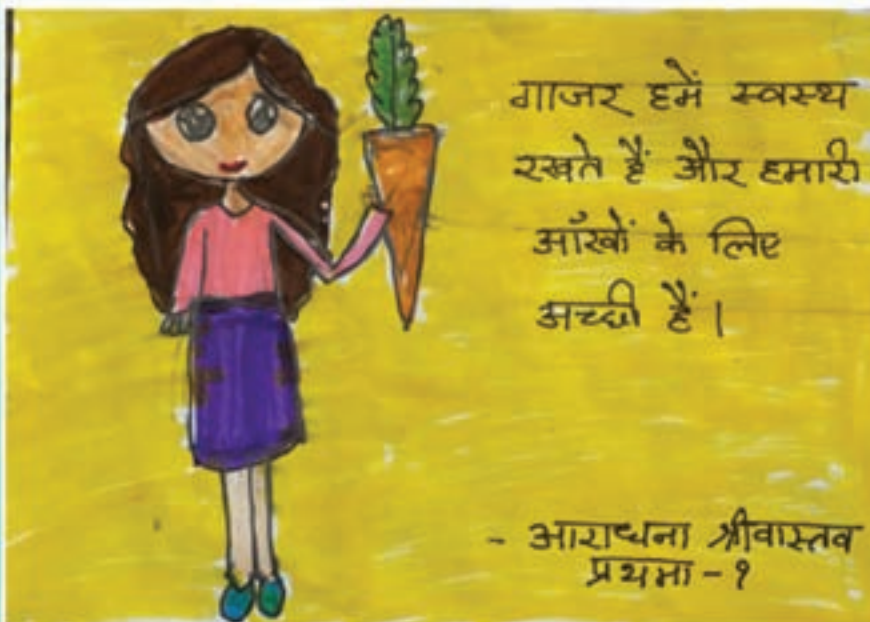 गाजर हमें स्वस्थ
रखते हैं और हमारी
आँखों के लिए
अच्छी हैं।
- आराधना श्रीवास्तव
प्रथमा - १